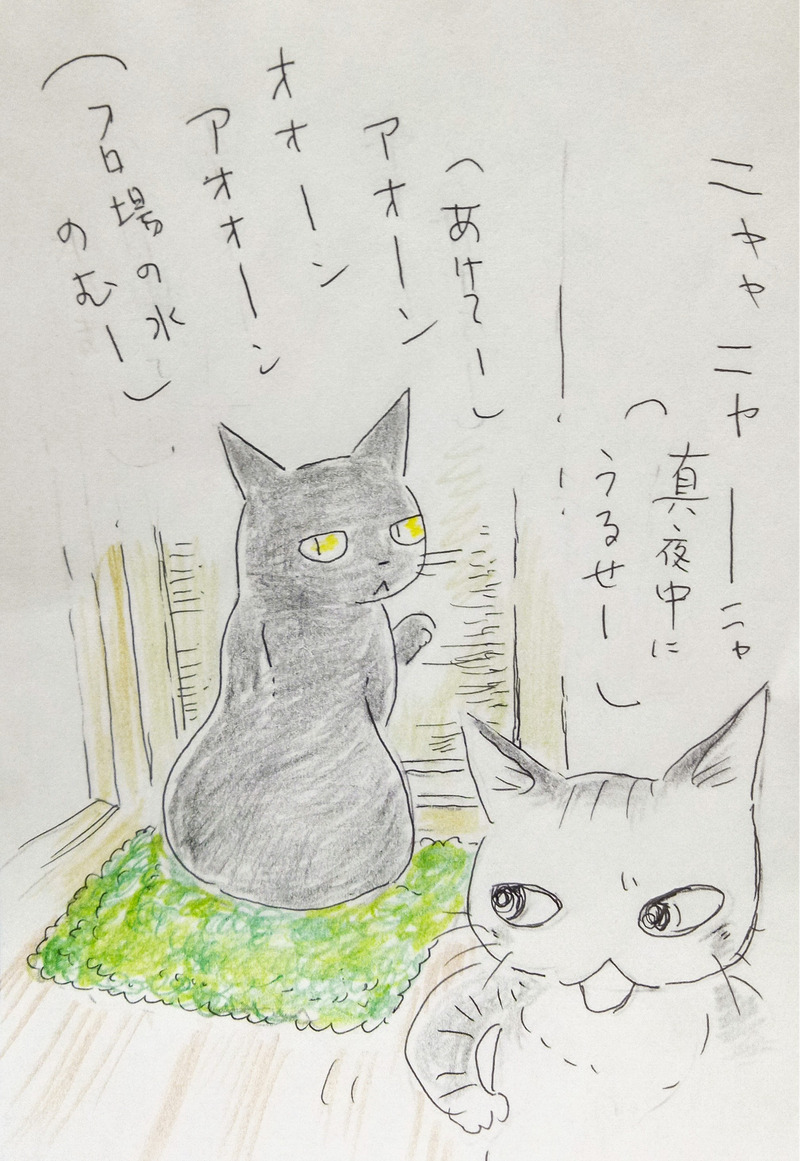 ニャャニャーニャ
（真夜中に
うるせー）
（あけてー）
アオーン
オオーン
アオオーン
（フロ場の水
のむー）